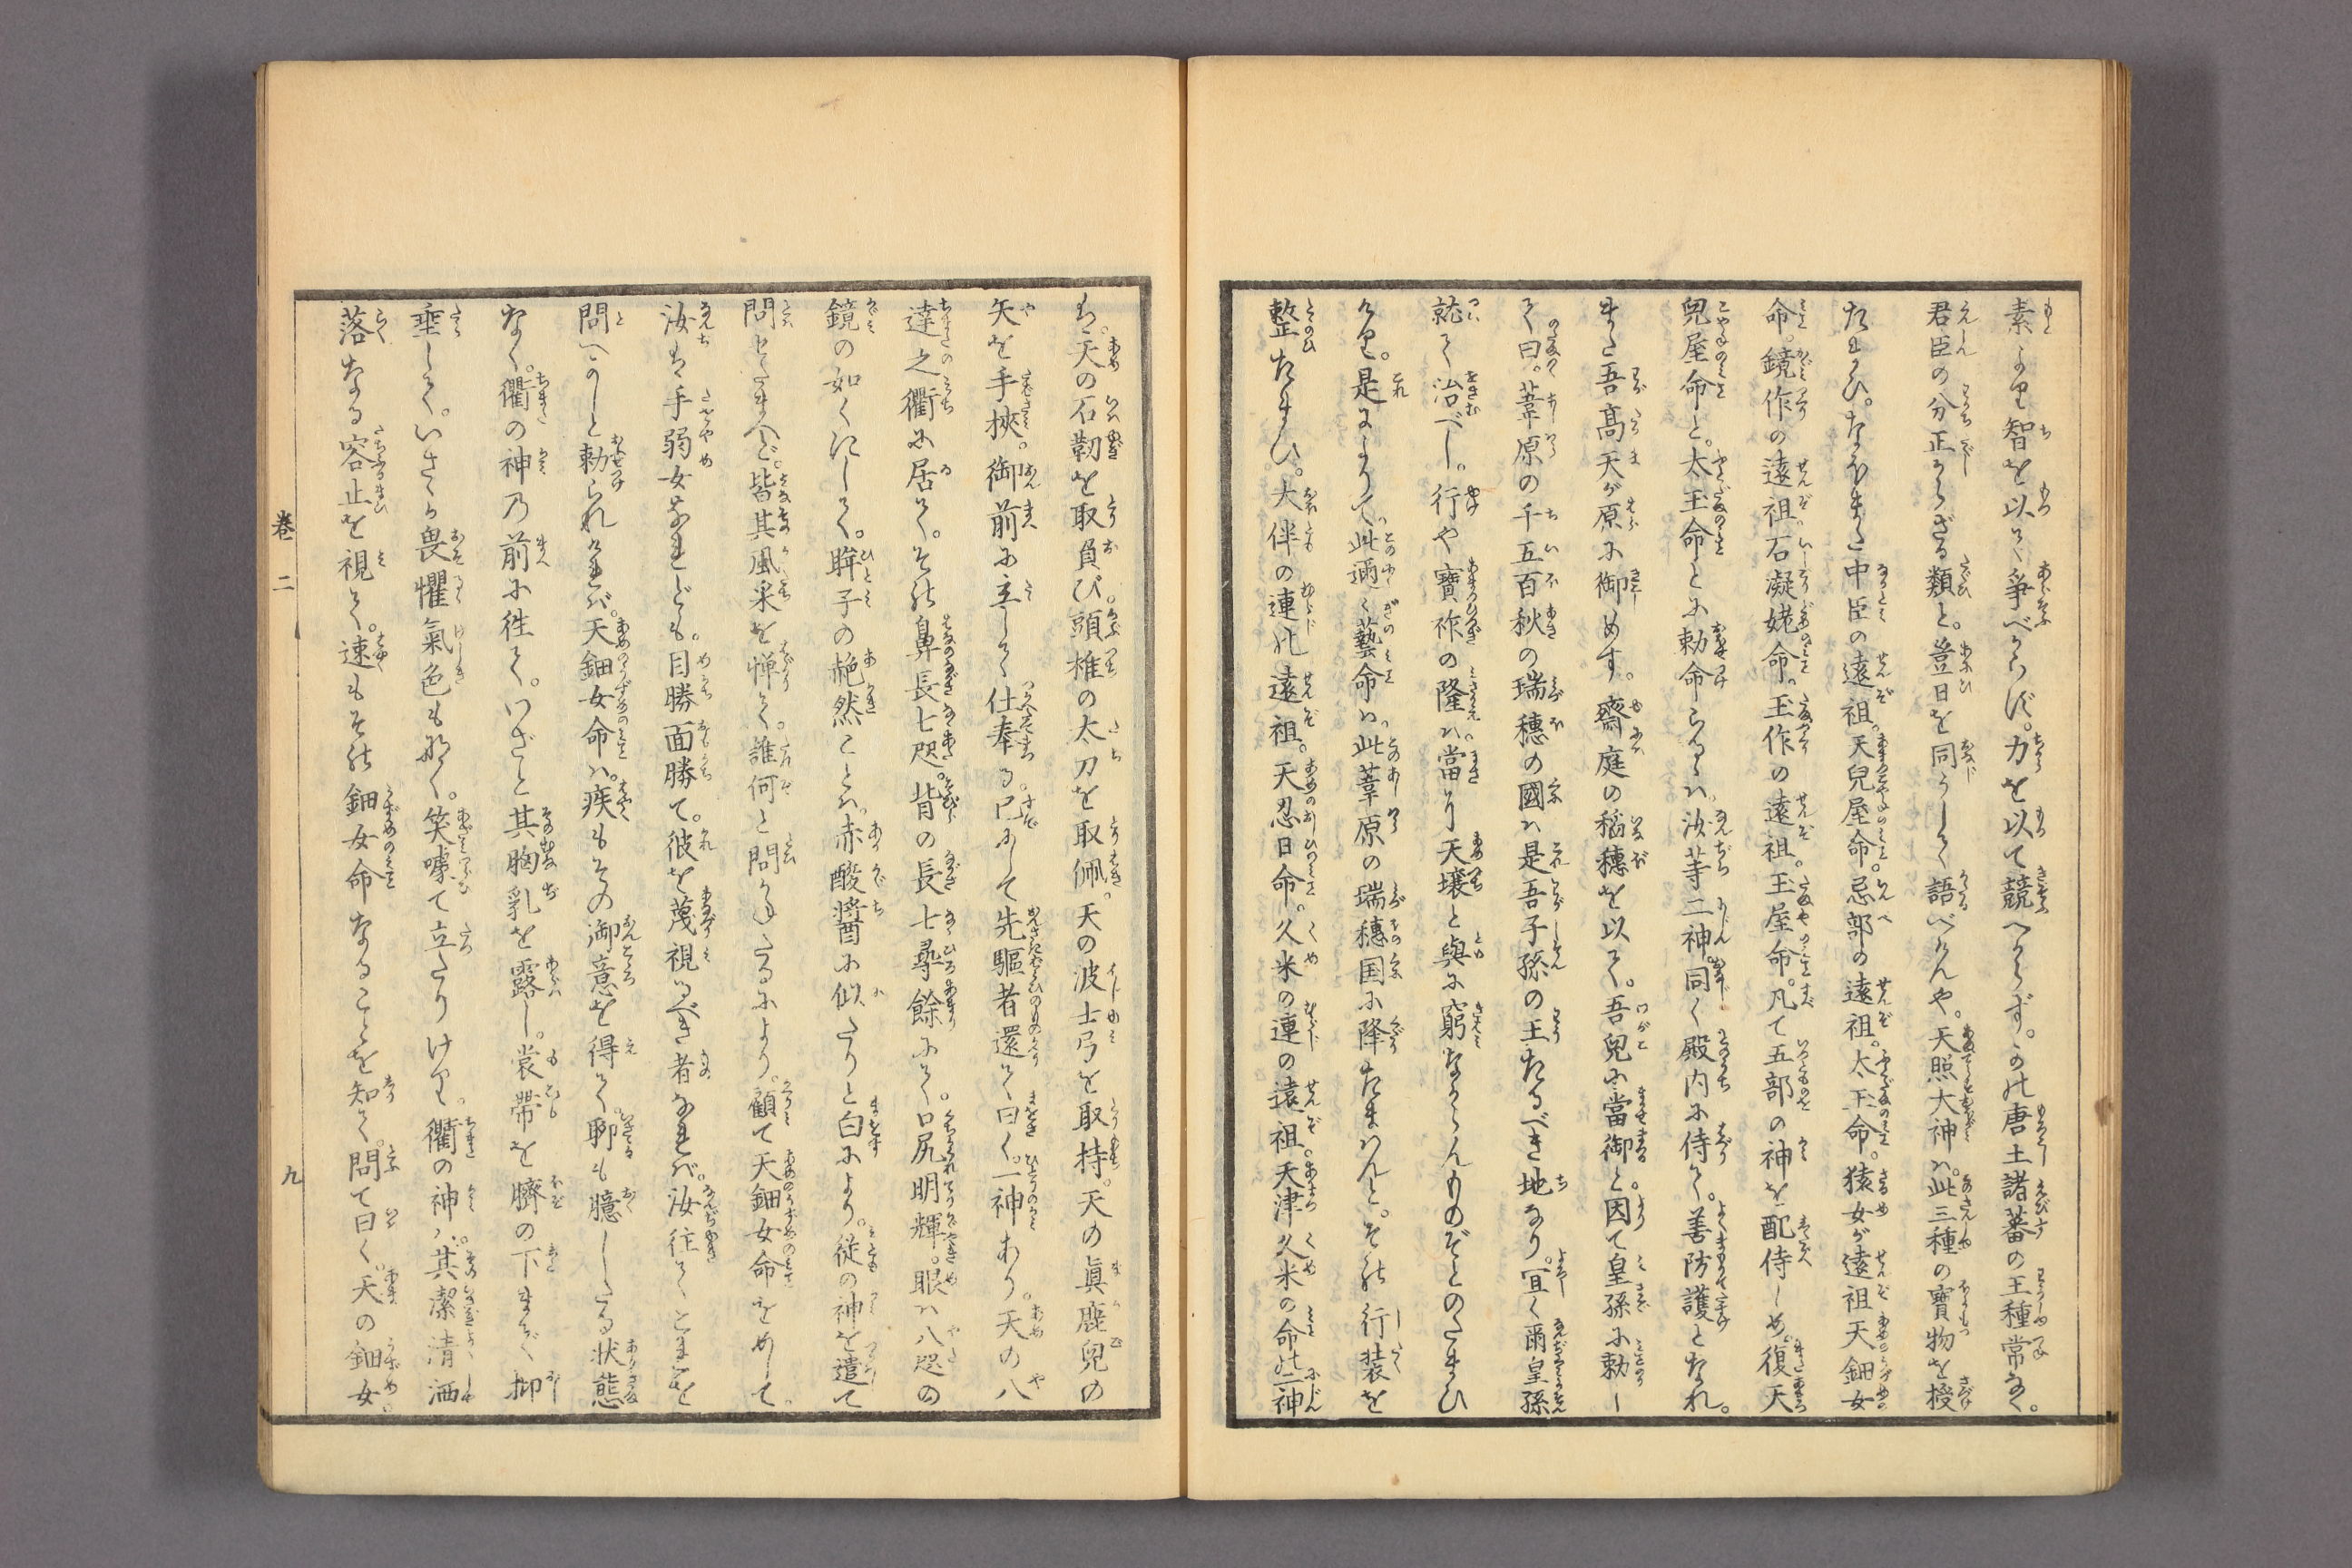 素より智を以て爭べからず。力を以て競べからず。かの唐土諸蕃の王種常なく。
君臣の分正からざる類と。豈日を同うして語べけんや。天照大神ハ。此三種の寳物を授
たまひ。なほまた中臣の遠祖。天兒屋命。忌部の遠祖。太玉命。猿女が遠祖天鈿女
命。鏡作の遠祖。石凝姥命。玉作の遠祖。玉屋命。凡て五部の神を配侍しめ。復天
兒屋命と。太玉命とに勅命らるゝハ。汝等二神同く殿内に侍て。善防護となれ。
また吾髙天が原に御めす。齋庭の稲穗を以て。吾兒に當御と。因て皇孫に勅し
て曰。葦原の千五百秋の瑞穗の國ハ是吾子孫の王たるべき地なり。冝く爾皇孫
就て治べし。行や寳祚の隆ハ。當に天壌と與に窮なからんものぞとのたまひ
けり。是によりて。此邇〻藝命ハ。此葦原の瑞穗国に降たまはんと。その行装を
整たまひ。大伴の連の遠祖。天忍日命。久米の連の遠祖。天津久米の命の二神
は。天の石靭を取負び。頭椎の太刀を取佩。天の波士弓を取持。天の眞鹿兒の
矢を手挾。御前に立して仕奉る。已にして先驅者還て曰く。一神あり。天の八
達之衢に居て。その鼻長七咫。背の長七尋餘にて。口尻明輝。眼ハ八咫の
鏡の如くにして。眸子の赩然ことハ。赤酸醤に似たりと白により。従の神を遣て
問せたまへど。皆其風采を憚て。誰何と問かねたるにより。顧て天鈿女命をめして。
汝は手弱女なれども。目勝面勝て。彼を蔑視つべき者なれバ。汝往てとま言を
問へかしと勅られけれバ。天鈿女命ハ。疾もその御意を得て。聊も臆したる状態
なく。衢の神乃前に徃て。いざと其胸乳を露し。裳帶を臍の下まで抑
垂して。いさゝか畏懼氣色も那く。笑噱て立たりけり。衢の神ハ。其潔清洒
落なる容止を視て。速もその鈿女命なることを知て。問て曰く。天の鈿女。
巻二
九